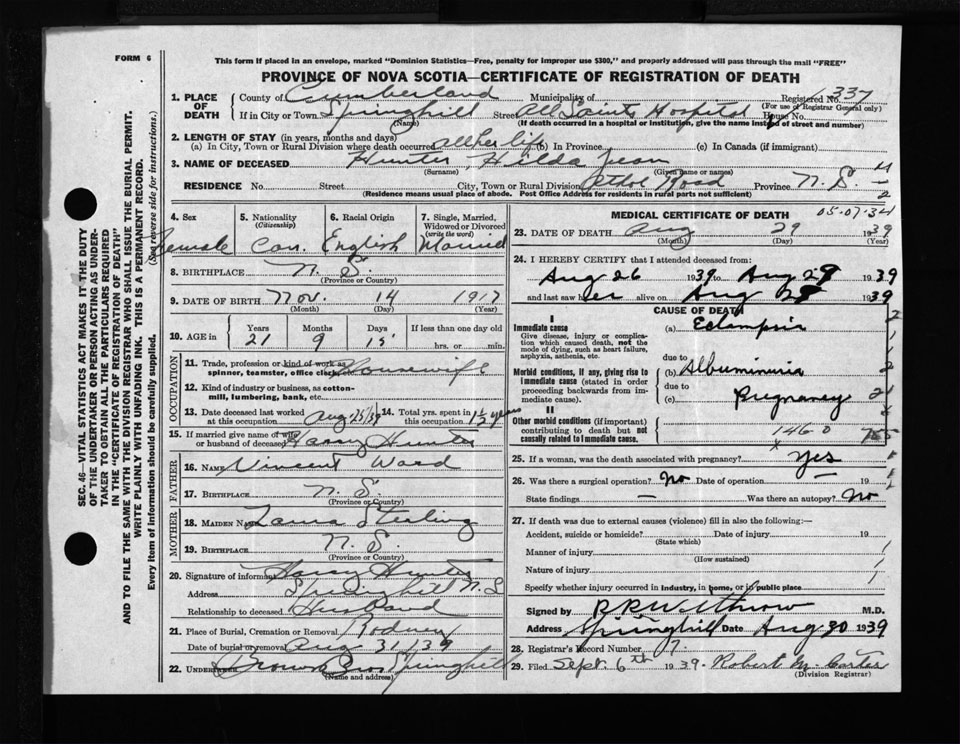 FORM 6
This form if placed in an envelope, marked "Dominion Statistics—Free, penalty for improper use $300," and properly addressed will pass through the mail "FREE"
PROVINCE OF NOVA SCOTIA—CERTIFICATE OF REGISTRATION OF DEATH
1. PLACE OF DEATH
County of Cumberland Municipality of Registered No. 337
(For use of Registrar General only)
If in City or Town Springhill Street All Saints Hospital House No.
(Name) (If death occurred in a hospital or institution, give the name instead of street and number)
2. LENGTH OF STAY (in years, months and days)
(a) In City, Town or Rural Division where death occurred all her life (b) In Province (c) In Canada (if immigrant)
3. NAME OF DECEASED Hunter Hilda Jean
(Surname) (Given name or names)
RESIDENCE No. Street City, Town or Rural Division Road Province N. S.
(Residence means usual place of abode. Post Office Address for residents in rural parts not sufficient)
4. Sex Female
5. Nationality (Citizenship) Can.
6. Racial Origin English
7. Single, Married, Widowed or Divorced (write the word) Married
8. BIRTHPLACE N. S.
(Province or Country)
9. DATE OF BIRTH Nov. 14 1917
(Month) (Day) (Year)
10. AGE in Years Months Days If less than one day old
21 9 15 hrs. or min.
OCCUPATION
11. Trade, profession or kind of work as spinner, teamster, office clerk, Housewife
12. Kind of industry or business, as cotton-mill, lumbering, bank, etc.
13. Date deceased last worked at this occupation Aug 25/39
14. Total yrs. spent in this occupation 1½ years
15. If married give name of wife or husband of deceased Harry Hunter
FATHER
16. NAME Vincent Ward
17. BIRTHPLACE N. S.
(Province or Country)
MOTHER
18. MAIDEN NAME Laura Sterling
19. BIRTHPLACE N. S.
(Province or Country)
20. Signature of informant Harry Hunter
Address Springhill N. S
Relationship to deceased Husband
21. Place of Burial, Cremation or Removal Rodney
Date of burial or removal Aug 31/39
22. Undertaker Brown Bros Springhill
(Name and address)
MEDICAL CERTIFICATE OF DEATH
05.07.34
23. DATE OF DEATH Aug 29 1939
(Month) (Day) (Year)
24. I HEREBY CERTIFY that I attended deceased from:
Aug 26 1939 to Aug 29 1939
and last saw her alive on Aug 29 1939
CAUSE OF DEATH
I
Immediate cause (a) Eclampsia
Give disease, injury or complication which caused death, not the mode of dying, such as heart failure, asphyxia, asthenia, etc.
due to
Morbid conditions, if any, giving rise to immediate cause (stated in order proceeding backwards from immediate cause).
(b) Albuminuria
due to
Pregnancy
II
Other morbid conditions (if important) contributing to death but not causally related to immediate cause.
146.0
25. If a woman, was the death associated with pregnancy? Yes
26. Was there a surgical operation? No Date of operation 19
State findings — Was there an autopsy? No
27. If death was due to external causes (violence) fill in also the following:—
Accident, suicide or homicide? Date of injury 19
(State which)
Manner of injury
(How sustained)
Nature of injury
Specify whether injury occurred in industry, in home, or in public place
Signed by R R Withrow M.D.
Address Springhill Date Aug 30 1939
28. Registrar's Record Number
29. Filed Sept. 6th 1939. Robert M. Carter
(Division Registrar)
SEC. 46—VITAL STATISTICS ACT MAKES IT THE DUTY
OF THE UNDERTAKER OR PERSON ACTING AS UNDER-
TAKER TO OBTAIN ALL THE PARTICULARS REQUIRED
IN THE "CERTIFICATE OF REGISTRATION OF DEATH"
AND TO FILE THE SAME WITH THE DIVISION REGISTRAR WHO SHALL ISSUE THE BURIAL PERMIT.
WRITE PLAINLY WITH UNFADING INK. THIS IS A PERMANENT RECORD.
Every item of information should be carefully supplied. (See reverse side for instructions).